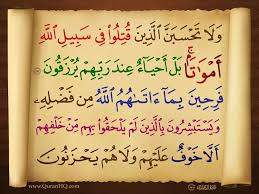 وَلَا تَحْسَبَنَّ الَّذِينَ قُتِلُوا فِي سَبِيلِ اللَّهِ
أَمْوَاتًا ۚ بَلْ أَحْيَاءٌ عِندَ رَبِّهِمْ يُرْزَقُونَ
فَرِحِينَ بِمَا آتَاهُمُ اللَّهُ مِن فَضْلِهِ
وَيَسْتَبْشِرُونَ بِالَّذِينَ لَمْ يَلْحَقُوا بِهِم مِّنْ خَلْفِهِمْ
أَلَّا خَوْفٌ عَلَيْهِمْ وَلَا هُمْ يَحْزَنُونَ
www.QuranHQ.com